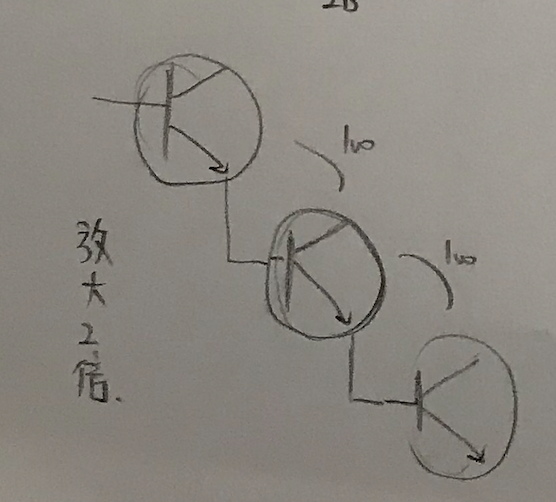 100
100
放
大
2
倍.